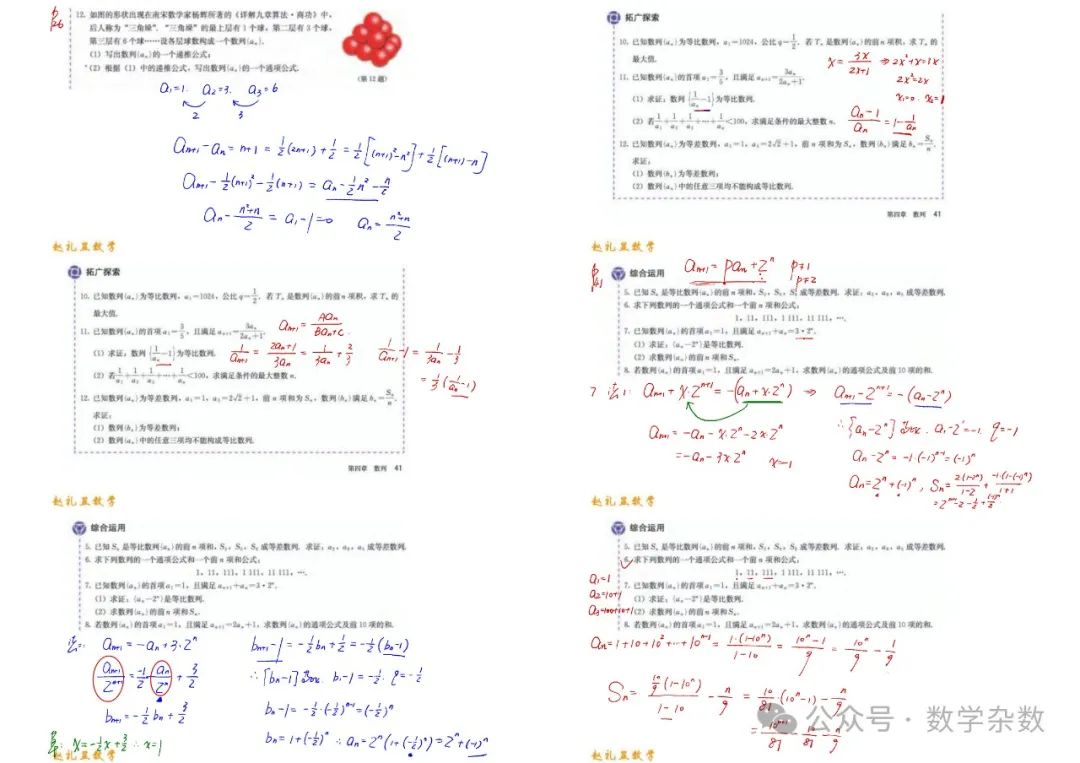 P26
12. 如图的形状出现在南宋数学家杨辉所著的《详解九章算法·商功》中,
后人称为“三角垛”.“三角垛”的最上层有1个球,第二层有3个球,
第三层有6个球……设各层球数构成一个数列{aₙ}.
(1) 写出数列{aₙ}的一个递推公式;
(2) 根据(1)中的递推公式,写出数列{aₙ}的一个通项公式.
(第12题)
a₁=1. a₂=3. a₃=6
2 3
aₙ₊₁-aₙ=n+1=½(2n+1)+½=½[(n+1)²-n²]+½[(n+1)-n]
aₙ₊₁-½(n+1)²-½(n+1)=aₙ-½n²-n/2
aₙ-(n²+n)/2=a₁-1=0 aₙ=(n²+n)/2
赵礼显数学
拓广探索
10. 已知数列{aₙ}为等比数列,a₁=1024,公比q=1/2. 若Tₙ是数列{aₙ}的前n项积,求Tₙ的
最大值.
11. 已知数列{aₙ}的首项a₁=3/5,且满足aₙ₊₁=3aₙ/(2aₙ+1).
(1) 求证:数列{1/aₙ-1}为等比数列.
(2) 若1/a₁+1/a₂+1/a₃+…+1/aₙ<100,求满足条件的最大整数n.
12. 已知数列{aₙ}为等差数列,a₁=1,a₂=2√2+1,前n项和为Sₙ,数列{bₙ}满足bₙ=Sₙ/n.
求证:
(1) 数列{bₙ}为等差数列;
(2) 数列{aₙ}中的任意三项均不能构成等比数列.
x=3x/(2x+1) ⇒2x²+x=3x
2x²=2x
x₁=0. x₂=1
(aₙ-1)/aₙ=1-1/aₙ
第四章 数列 41
赵礼显数学
拓广探索
10. 已知数列{aₙ}为等比数列,a₁=1024,公比q=1/2. 若Tₙ是数列{aₙ}的前n项积,求Tₙ的
最大值.
11. 已知数列{aₙ}的首项a₁=3/5,且满足aₙ₊₁=3aₙ/(2aₙ+1).
(1) 求证:数列{1/aₙ-1}为等比数列.
(2) 若1/a₁+1/a₂+1/a₃+…+1/aₙ<100,求满足条件的最大整数n.
12. 已知数列{aₙ}为等差数列,a₁=1,a₂=2√2+1,前n项和为Sₙ,数列{bₙ}满足bₙ=Sₙ/n.
求证:
(1) 数列{bₙ}为等差数列;
(2) 数列{aₙ}中的任意三项均不能构成等比数列.
aₙ₊₁=Aaₙ/(Baₙ+C)
1/aₙ₊₁=(2aₙ+1)/3aₙ=1/3aₙ+2/3 1/aₙ₊₁-1=1/3aₙ-1/3
=⅓(1/aₙ-1)
第四章 数列 41
赵礼显数学
P41
综合运用
aₙ₊₁=paₙ+2ⁿ p≠1
p≠2
5. 已知Sₙ是等比数列{aₙ}的前n项和,S₃,S₉,S₆成等差数列. 求证:a₂,a₈,a₅成等差数列.
6. 求下列数列的一个通项公式和一个前n项和公式:
1, 11, 111, 1 111, 11 111, ….
7. 已知数列{aₙ}的首项a₁=1,且满足aₙ₊₁+aₙ=3·2ⁿ.
(1) 求证:{aₙ-2ⁿ}是等比数列.
(2) 求数列{aₙ}的前n项和Sₙ.
8. 若数列{aₙ}的首项a₁=1,且满足aₙ₊₁=2aₙ+1,求数列{aₙ}的通项公式及前10项的和.
7 法1: aₙ₊₁+x·2ⁿ⁺¹=-(aₙ+x·2ⁿ) ⇒ aₙ₊₁-2ⁿ⁺¹=-(aₙ-2ⁿ)
aₙ₊₁=-aₙ-x·2ⁿ-2x·2ⁿ
=-aₙ-3x·2ⁿ x=-1
∴{aₙ-2ⁿ} a₁-2=-1. q=-1
aₙ-2ⁿ=-1·(-1)ⁿ⁻¹=(-1)ⁿ
aₙ=2ⁿ+(-1)ⁿ, Sₙ=2(1-2ⁿ)/(1-2)+-1·(1-(-1)ⁿ)/(1+1)
=2ⁿ⁺¹-2-½+(-1)ⁿ/2
赵礼显数学
综合运用
5. 已知Sₙ是等比数列{aₙ}的前n项和,S₃,S₉,S₆成等差数列. 求证:a₂,a₈,a₅成等差数列.
6. 求下列数列的一个通项公式和一个前n项和公式:
1, 11, 111, 1 111, 11 111, ….
7. 已知数列{aₙ}的首项a₁=1,且满足aₙ₊₁+aₙ=3·2ⁿ.
(1) 求证:{aₙ-2ⁿ}是等比数列.
(2) 求数列{aₙ}的前n项和Sₙ.
8. 若数列{aₙ}的首项a₁=1,且满足aₙ₊₁=2aₙ+1,求数列{aₙ}的通项公式及前10项的和.
法二: aₙ₊₁=-aₙ+3·2ⁿ
aₙ₊₁/2ⁿ⁺¹=-½·aₙ/2ⁿ+3/2
bₙ₊₁=-½bₙ+3/2
草: x=-½x+3/2 ∴x=1
bₙ₊₁-1=-½bₙ+½=-½(bₙ-1)
∴{bₙ-1} b₁-1=-½. q=-½
bₙ-1=-½·(-½)ⁿ⁻¹=(-½)ⁿ
bₙ=1+(-½)ⁿ ∴aₙ=2ⁿ(1+(-½)ⁿ)=2ⁿ+(-1)ⁿ
赵礼显数学
综合运用
5. 已知Sₙ是等比数列{aₙ}的前n项和,S₃,S₉,S₆成等差数列. 求证:a₂,a₈,a₅成等差数列.
6. 求下列数列的一个通项公式和一个前n项和公式:
1, 11, 111, 1 111, 11 111, ….
7. 已知数列{aₙ}的首项a₁=1,且满足aₙ₊₁+aₙ=3·2ⁿ.
(1) 求证:{aₙ-2ⁿ}是等比数列.
(2) 求数列{aₙ}的前n项和Sₙ.
8. 若数列{aₙ}的首项a₁=1,且满足aₙ₊₁=2aₙ+1,求数列{aₙ}的通项公式及前10项的和.
a₁=1
a₂=10+1
a₃=100+10+1
aₙ=1+10+10²+…+10ⁿ⁻¹=1·(1-10ⁿ)/(1-10)=(10ⁿ-1)/9=10ⁿ/9-1/9
Sₙ=(10/9)(1-10ⁿ)/(1-10)-n/9=10/81·(10ⁿ-1)-n/9
=10ⁿ⁺¹/81-10/81-n/9
赵礼显数学
公众号·数学杂数